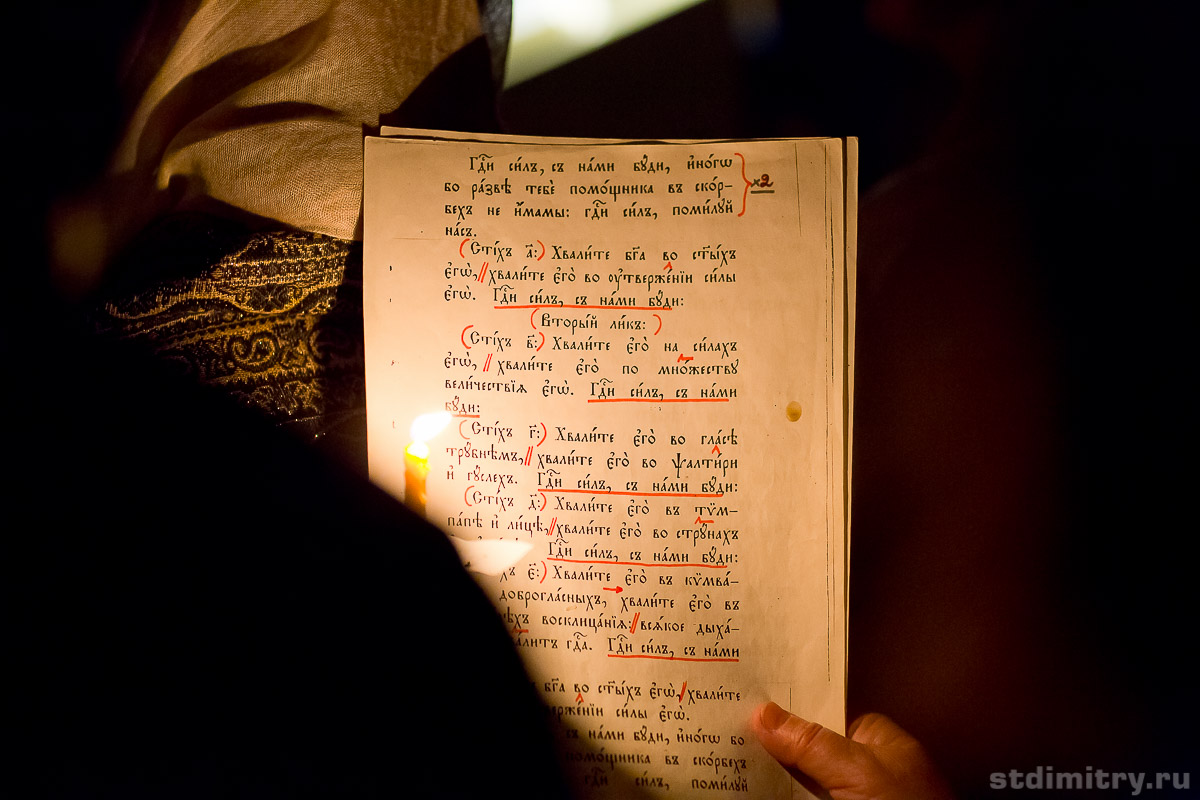 Гдⷭ҇и си́лъ, съ на́ми бꙋ́ди, и҆но́гѡ
бо ра́звѣ тебє̀ помо́щника въ ско́р–
бехъ не и҆́мамы: гдⷭ҇и си́лъ, поми́лꙋй
на́съ.
×2
(Сті́хъ а҃:) Хвали́те бг҃а во ст҃ы́хъ
є҆гѡ̀, // хвали́те є҆го̀ во ᲂу҆тверже́нїи си́лы
є҆гѡ̀. Гдⷭ҇и си́лъ, съ на́ми бꙋ́ди:
(Вторы́й ли́къ:)
(Сті́хъ в҃:) Хвали́те є҆го̀ на си́лахъ
є҆гѡ̀, // хвали́те є҆го̀ по мно́жествꙋ
вели́чествїѧ є҆гѡ̀. Гдⷭ҇и си́лъ, съ на́ми
бꙋ́ди:
(Сті́хъ г҃:) Хвали́те є҆го̀ во гла́сѣ
трꙋ́бнѣмъ, // хвали́те є҆го̀ во ѱалти́ри
и҆ гꙋ́слехъ. Гдⷭ҇и си́лъ, съ на́ми бꙋ́ди:
(Сті́хъ д҃:) Хвали́те є҆го̀ въ тѷм–
па́нѣ и҆ ли́цѣ, // хвали́те є҆го̀ во стрꙋ́нахъ
Гдⷭ҇и си́лъ, съ на́ми бꙋ́ди:
хъ є҃:) Хвали́те є҆го̀ въ кѷмва́–
доброгла́сныхъ, хвали́те є҆го̀ въ
восклица́нїѧ: // всѧ́кое дыха́–
гдⷭ҇а. Гдⷭ҇и си́лъ, съ на́ми
бг҃а во ст҃ы́хъ є҆гѡ̀, // хвали́те
си́лы є҆гѡ̀.
съ на́ми бꙋ́ди, и҆но́гѡ бо
помо́щника въ ско́рбехъ
гдⷭ҇и си́лъ, поми́лꙋй
stdimitry.ru